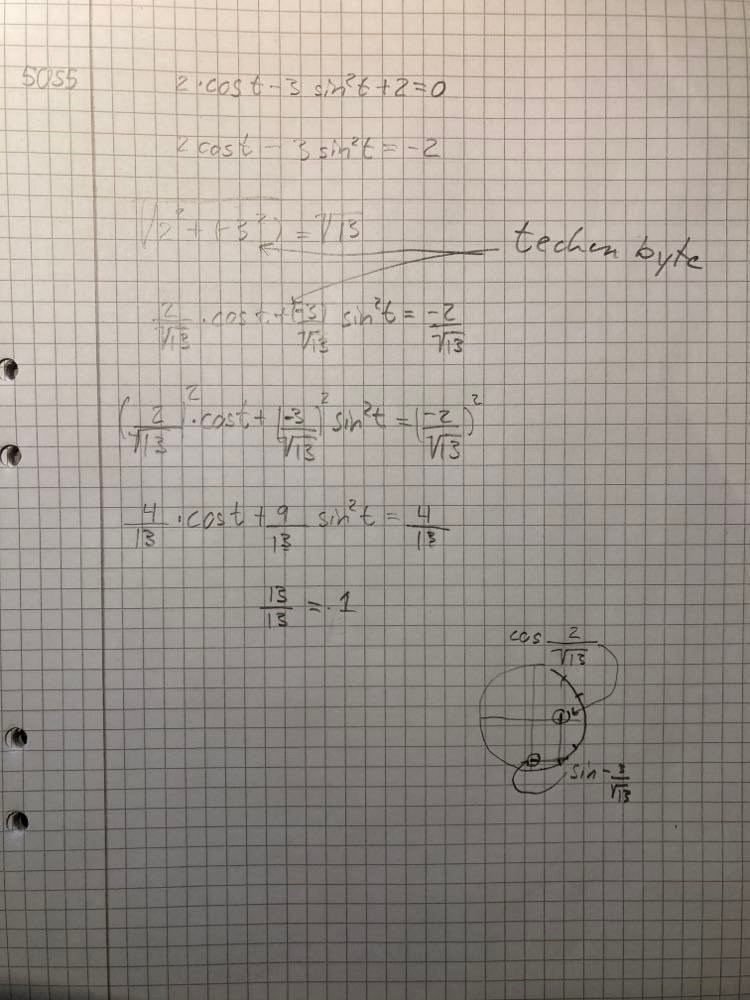 5055
2·cost-3 sin²t+2=0
2cost - 3 sin²t = -2
√(2²+(-3²)) = √13
techen byte
2/√13 ·cost+(-3)/√13 sin²t = -2/√13
(2/√13)²·cost+(-3/√13)² sin²t = (-2/√13)²
4/13 ·cost+9/13 sin²t = 4/13
13/13 = 1
cos 2/√13
sin -3/√13